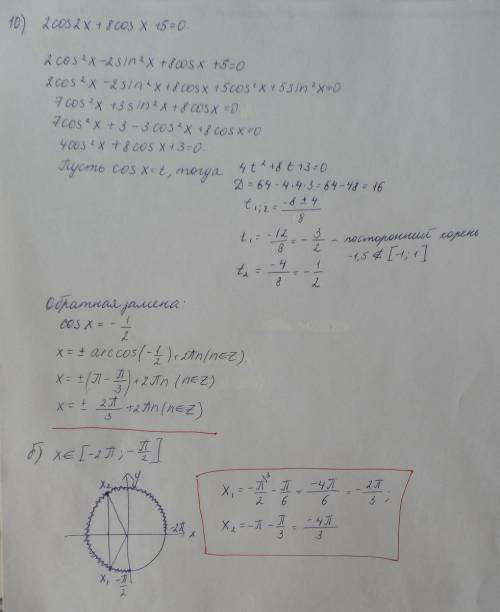 10) 2cos2x + 8cosx + 5 = 0.
2cos²x - 2sin²x + 8cosx + 5 = 0
2cos²x - 2sin²x + 8cosx + 5cos²x + 5sin²x = 0.
7cos²x + 3sin²x + 8cosx = 0.
7cos²x + 3 - 3cos²x + 8cosx = 0
4cos²x + 8cosx + 3 = 0.
Пусть cosx = t, тогда 4t² + 8t + 3 = 0
D = 64 - 4·4·3 = 64 - 48 = 16
t₁;₂ = (-8 ± 4)/8
t₁ = -12/8 = -3/2 - посторонний корень
-1,5 ∉ [-1; 1]
t₂ = -4/8 = -1/2
Обратная замена:
cosx = -1/2
x = ± arccos(-1/2) + 2πn (n∈Z).
x = ±(π - π/3) + 2πn (n∈Z)
x = ± 2π/3 + 2πn (n∈Z)
б) x ∈ [-2π; -π/2]
x₁ = -π/2 \3 - π/6 = -4π/6 = -2π/3;
x₂ = -π - π/3 = -4π/3
x₂ y
-2π x
x₁ -π/2